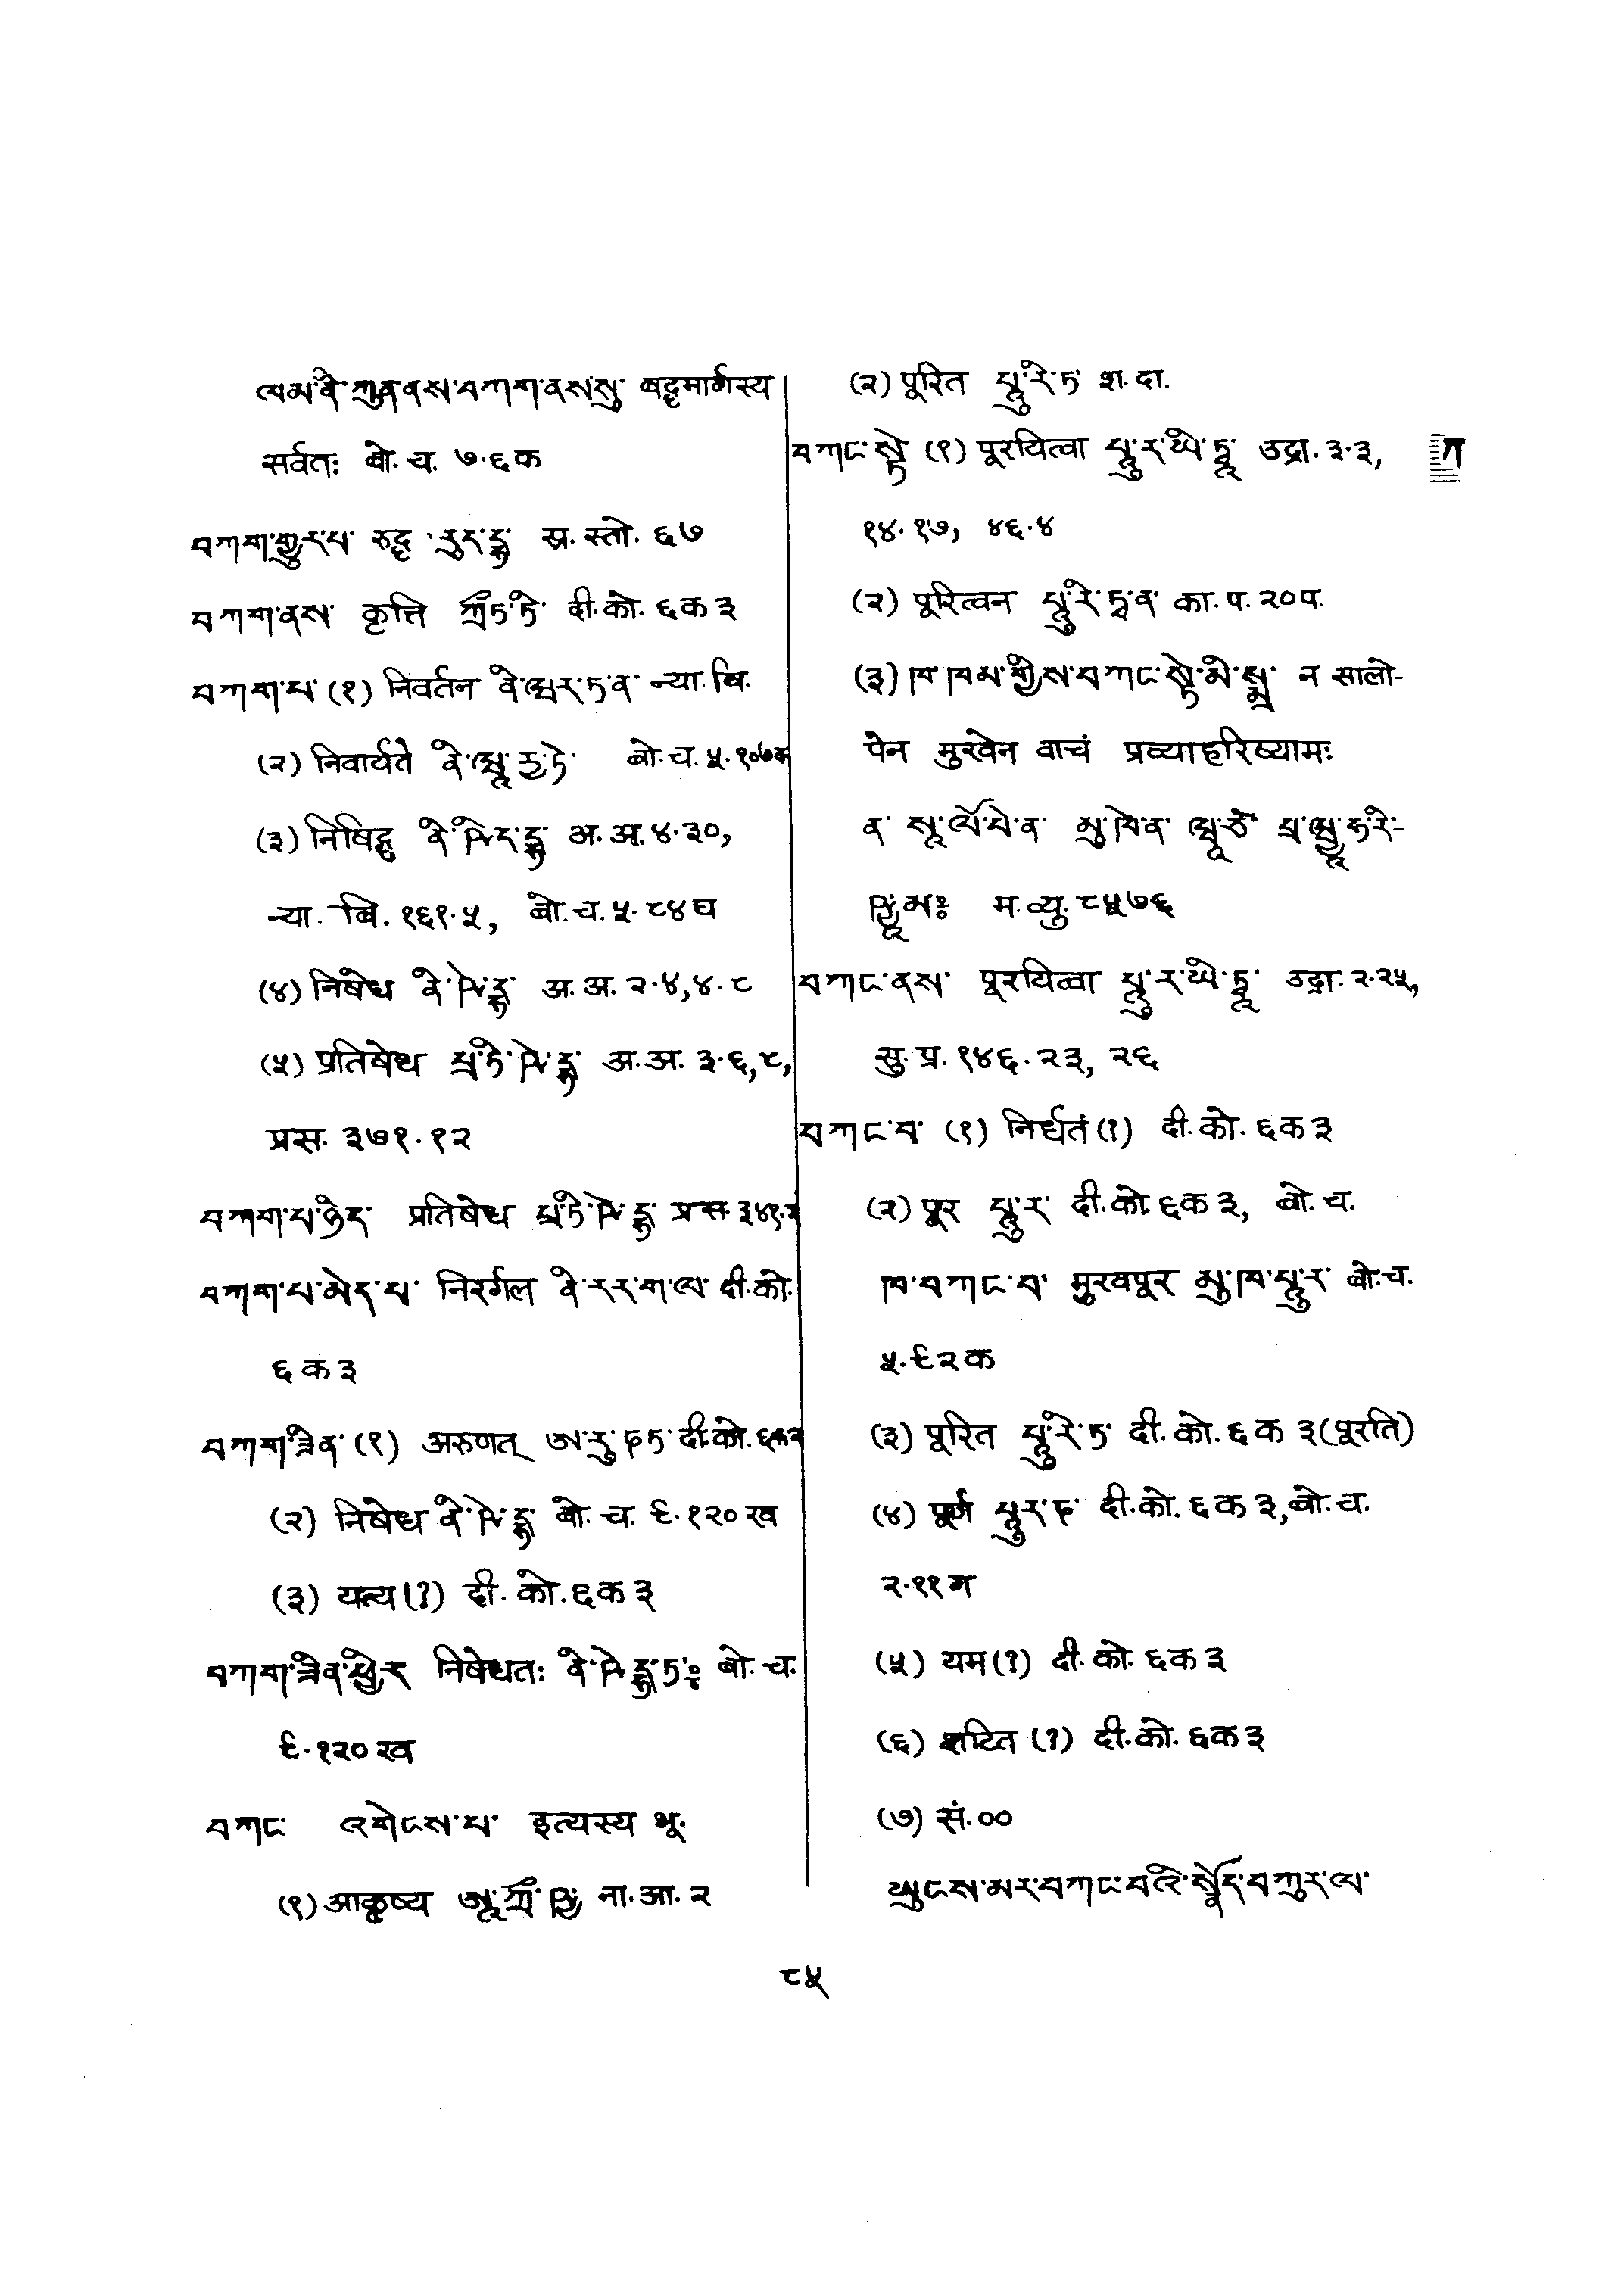 ལམ་ནི་ཀུན་ནས་བཀག་ནས་སུ་ बद्धमार्गस्य
सर्वतः बो. च. ७.६क
བཀག་གྱུར་པ་ रुद्ध རུད་དྷ་ स्र. स्तो. ६७
བཀག་ནས་ कृत्ति ཀྲྀཏ་ཏི་ दी.को. ६क ३
བཀག་པ་ (१) निवर्तन ནི་ཝར་ཏ་ན་ न्या. बि.
(२) निवार्यते ནི་ཝཱ་རྱ་ཏེ་ बो. च. ५.१०७क
(३) निषिद्ध ནི་ཥིད་དྷ་ अ. अ. ४.३०,
न्या. बि. १६१.५, बो. च. ५.८४घ
(४) निषेध ནི་ཥེ་དྷ་ अ. अ. २.४, ४.८
(५) प्रतिषेध པྲ་ཏི་ཥེ་དྷ་ अ. अ. ३.६,८,
प्रस. ३७१.१२
བཀག་པ་ཉིད་ प्रतिषेध པྲ་ཏི་ཥེ་དྷ་ प्रस.
བཀག་པ་མེད་པ་ निरर्गल ནི་རར་ག་ལ་ दी.को.
६ क ३
བཀག་ཟིན་ (१) अरुणत् ཨ་རུ་ཎཏ་ दी.को. ६क३
(२) निषेध ནི་ཥེ་དྷ་ बो. च. ९.१२० ख
(३) यत्य(?) दी. को. ६क ३
བཀག་ཟིན་ཕྱིར་ निषेधतः ནི་ཥེ་དྷ་ཏཿ बो. च.
९.१२० ख
བཀང་ འགེངས་པ་ इत्यस्य भू.
(१) आकृष्य ཨཱ་ཀྲྀ་ཥྱ ना. आ. २
(२) पूरित པཱུ་རི་ཏ་ श. दा.
བཀང་སྟེ་ (१) पूरयित्वा པཱུ་ར་ཡི་ཏྭཱ་ उद्रा. ३.३,
ཀ
१४.१७, ४६.४
(२) पूरित्वन པཱུ་རི་ཏྭ་ན་ का. प. २०प.
(३) ཁ་ཁམ་གྱིས་བཀང་སྟེ་མི་སྨྲ་ न सालो-
पेन मुखेन वाचं प्रव्याहरिष्यामः
ན་ སཱ་ལོ་པེ་ན་ མུ་ཁེ་ན་ ཝཱ་ཙཾ་ པྲ་ཝྱཱ་ཧ་རི-
ཥྱཱ་མཿ म. व्यु. ८५७६
བཀང་ནས་ पूरयित्वा པཱུ་ར་ཡི་ཏྭཱ་ उद्रा. २.२५,
सु. प्र. १४६.२३, २६
བཀང་བ་ (१) निर्धतं(?) दी. को. ६क ३
(२) पूर པཱུ་ར་ दी.को. ६क ३, बो. च.
ཁ་བཀང་བ་ मुखपूर མུ་ཁ་པཱུ་ར་ बो. च.
५.९२ क
(३) पूरित པཱུ་རི་ཏ་ दी. को. ६ क ३ (पूरति)
(४) पूर्ण པཱུར་ཎ་ दी.को. ६ क ३, बो. च.
२.११ ग
(५) यम(?) दी. को. ६क ३
(६) शटित (?) दी. को. ६क ३
(७) सं. ००
ཡུངས་མར་བཀང་བའི་སྣོད་བཀུར་ལ་
८५